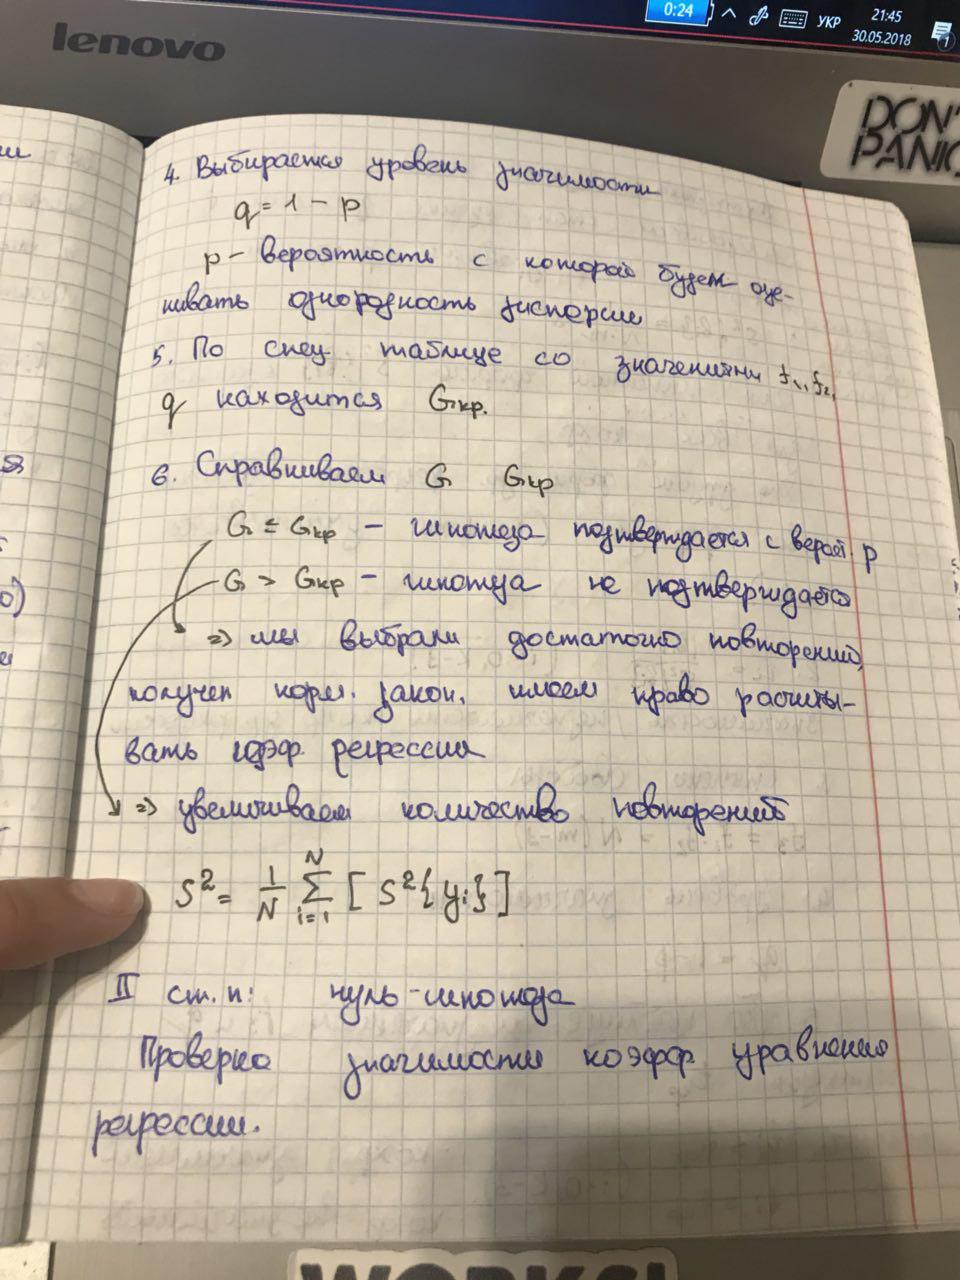 lenovo
0:24
УКР
21:45
30.05.2018
1
DON'T
PANIC
4. Выбирается уровень значимости
q = 1 - p
p - вероятность с которой будем оце-
нивать однородность дисперсии
5. По спец. таблице со значениями f₁, f₂,
q находится Gкр.
6. Сравниваем G Gкр
G ≤ Gкр - гипотеза подтверждается с вероят. p
G > Gкр - гипотеза не подтверждается
=> мы выбрали достаточно повторений,
получен норм. закон, имеем право расчиты-
вать коэф. регрессии
=> увеличиваем количество повторений
S² = 1/N Σ i=1 N [ S²{yᵢ} ]
II ст. п: нуль-гипотеза
Проверка значимости коэфф уравнения
регрессии.
WORKS!